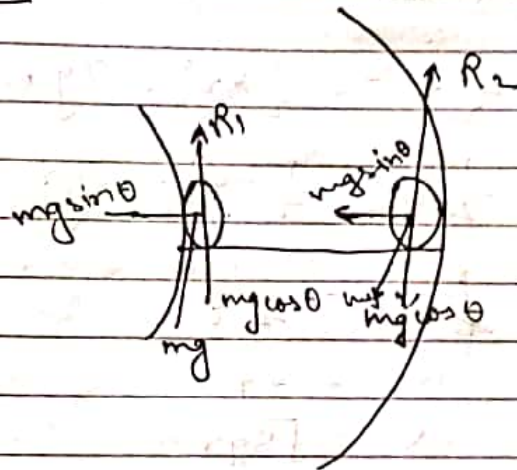 R₂
R₁
mg sinθ
mg sinθ
mg cosθ
mg cosθ
mg